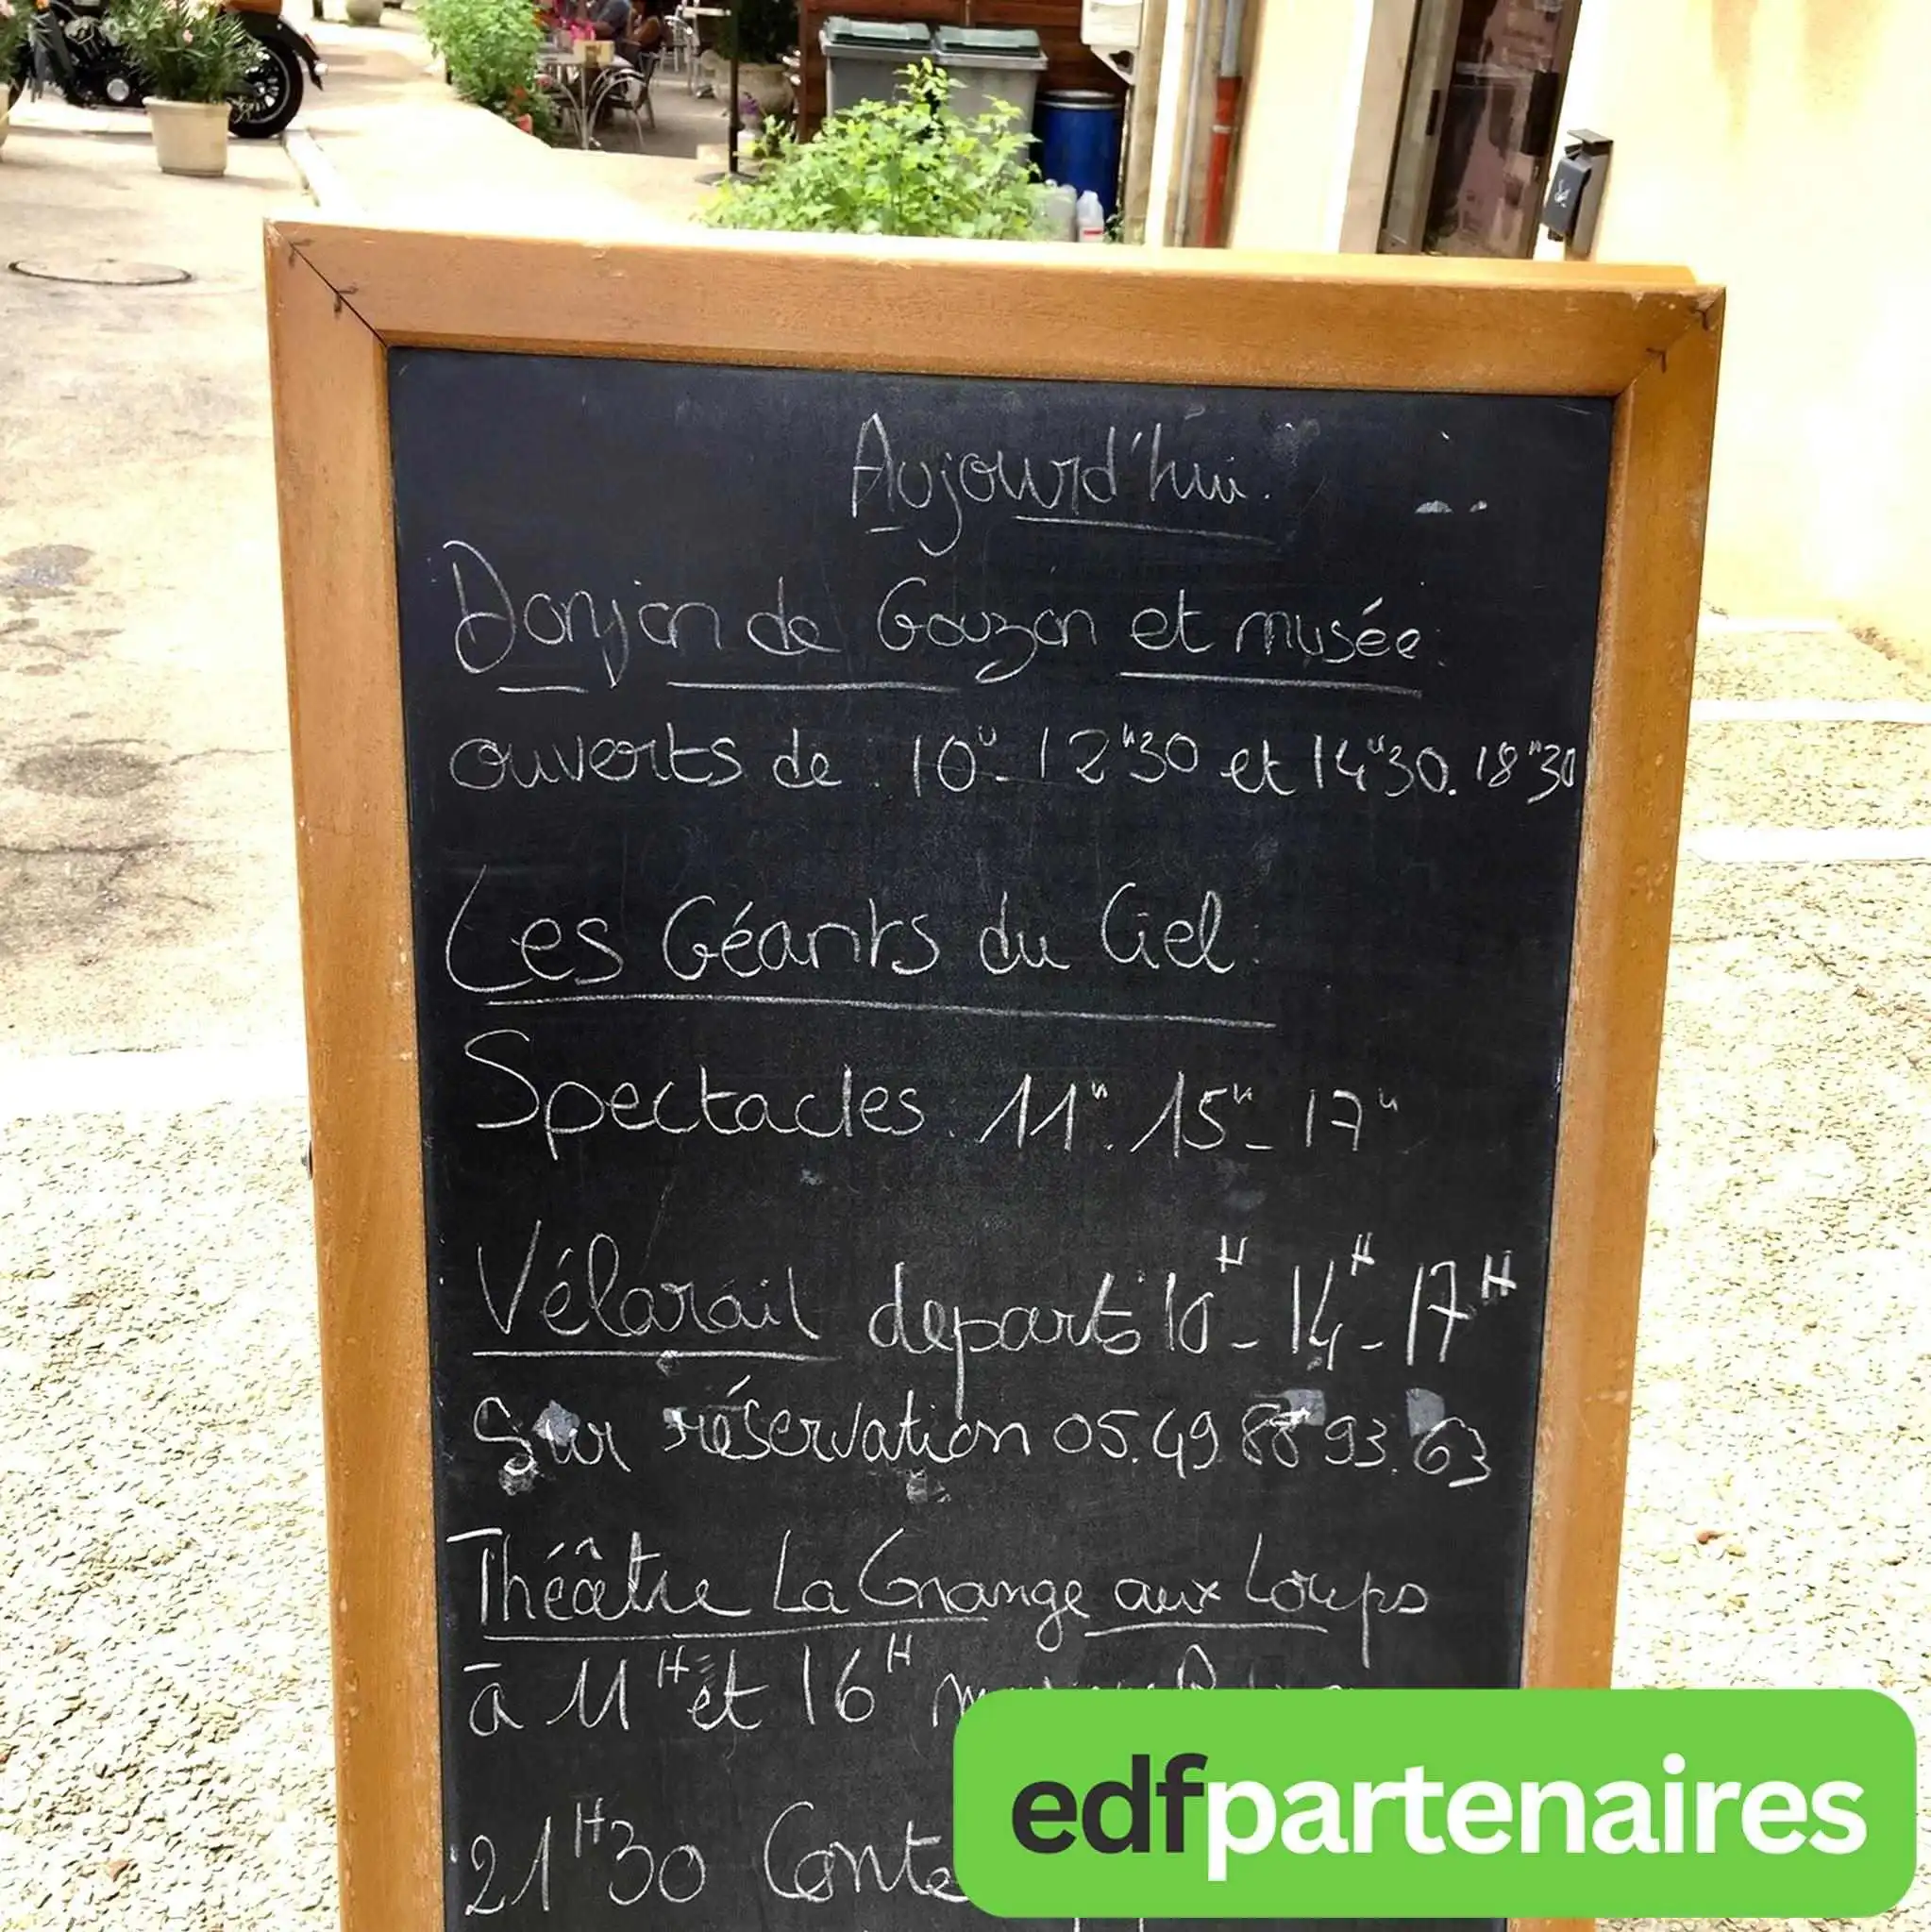 Aujourd'hui.
Donjon de Gouzon et musée:
ouverts de : 10h - 12h30 et 14h30. 18h30
Les Géants du Ciel:
Spectacles. 11h. 15h - 17h
Vélorail departs 10H - 14H - 17H
Sur réservation 05.49 88 93.63
Théâtre La Grange aux Loups
à 11H et 16H
21H30 Conte
edfpartenaires